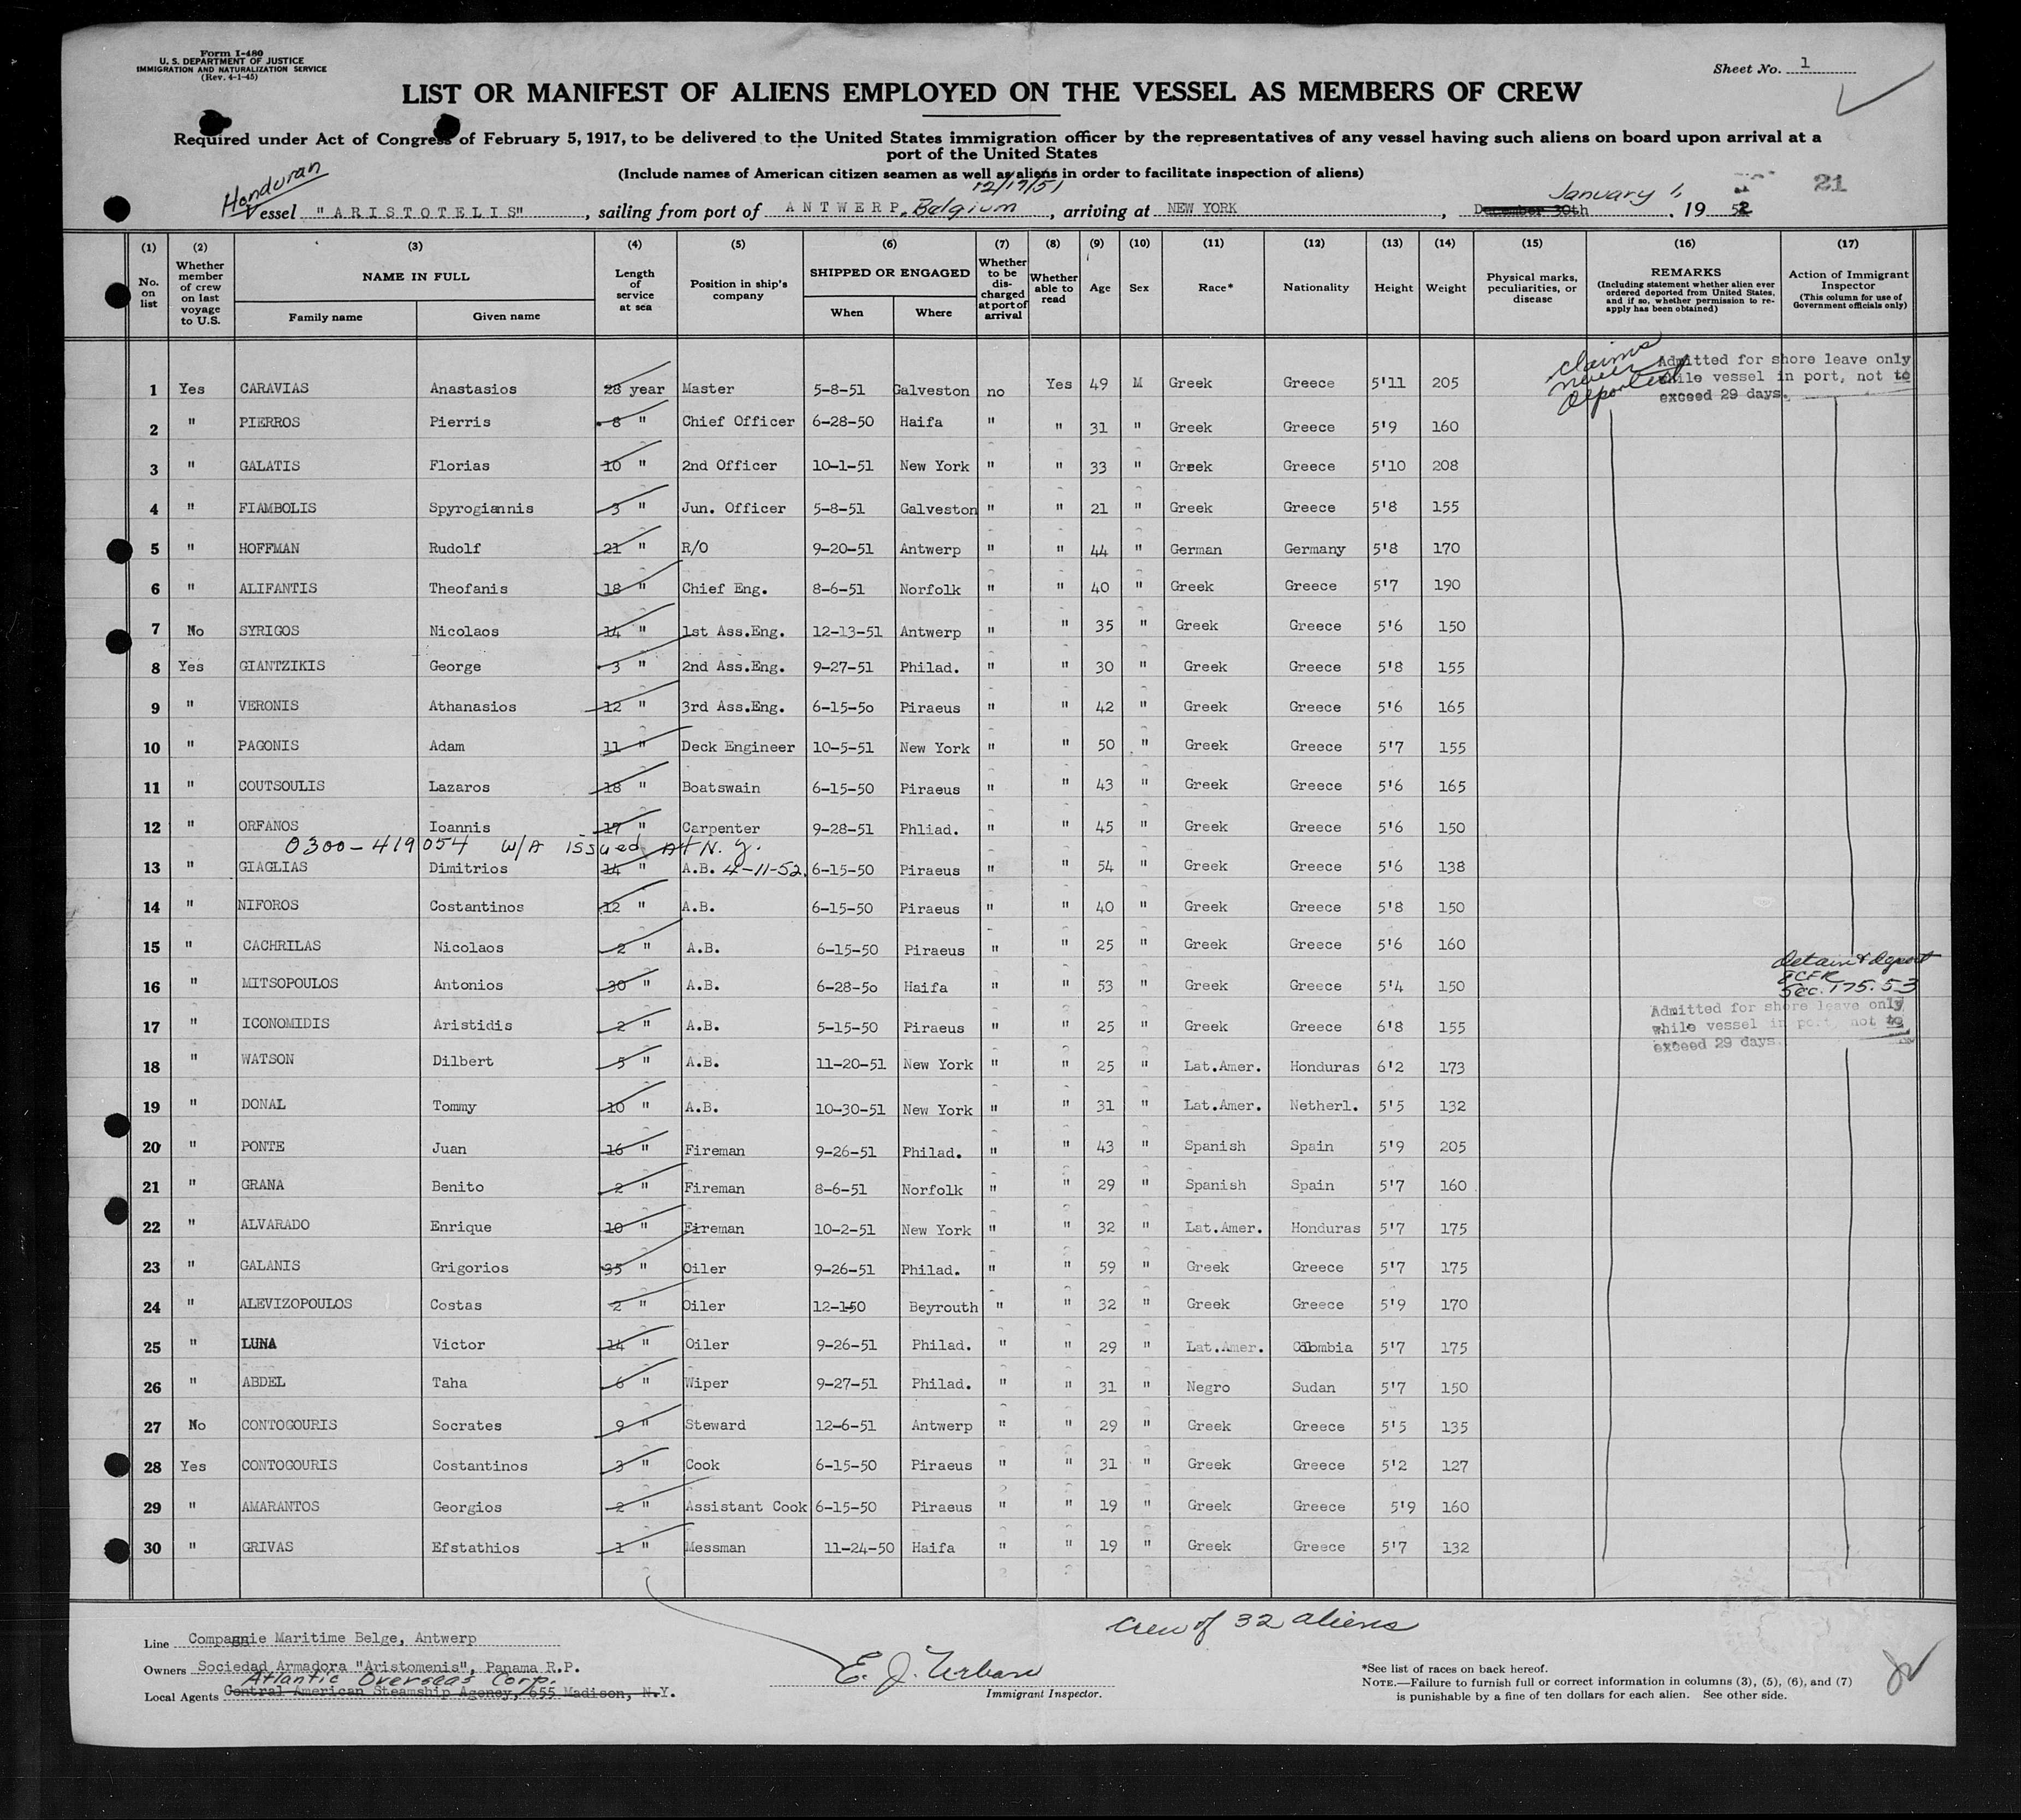 Form I-480
U. S. DEPARTMENT OF JUSTICE
IMMIGRATION AND NATURALIZATION SERVICE
(Rev. 4-1-45)
Sheet No. 1
LIST OR MANIFEST OF ALIENS EMPLOYED ON THE VESSEL AS MEMBERS OF CREW
Required under Act of Congress of February 5, 1917, to be delivered to the United States immigration officer by the representatives of any vessel having such aliens on board upon arrival at a
port of the United States
(Include names of American citizen seamen as well as aliens in order to facilitate inspection of aliens)
Honduran 12/19/51 January 1, 21
Vessel "ARISTOTELIS", sailing from port of ANTWERP, Belgium, arriving at NEW YORK, December 30th, 1952
(1) (2) (3) (4) (5) (6) (7) (8) (9) (10) (11) (12) (13) (14) (15) (16) (17)
No. on list
Whether member of crew on last voyage to U.S.
NAME IN FULL
Family name Given name
Length of service at sea
Position in ship's company
SHIPPED OR ENGAGED
When Where
Whether to be discharged at port of arrival
Whether able to read
Age
Sex
Race*
Nationality
Height
Weight
Physical marks, peculiarities, or disease
REMARKS
(Including statement whether alien ever ordered deported from United States, and if so, whether permission to reapply has been obtained)
Action of Immigrant Inspector
(This column for use of Government officials only)
claims never deported
Admitted for shore leave only
while vessel in port, not to
exceed 29 days.
1 Yes CARAVIAS Anastasios 28 year Master 5-8-51 Galveston no Yes 49 M Greek Greece 5'11 205
2 " PIERROS Pierris 8 " Chief Officer 6-28-50 Haifa " " 31 " Greek Greece 5'9 160
3 " GALATIS Florias 10 " 2nd Officer 10-1-51 New York " " 33 " Greek Greece 5'10 208
4 " FIAMBOLIS Spyrogiannis 3 " Jun. Officer 5-8-51 Galveston " " 21 " Greek Greece 5'8 155
5 " HOFFMAN Rudolf 21 " R/O 9-20-51 Antwerp " " 44 " German Germany 5'8 170
6 " ALIFANTIS Theofanis 18 " Chief Eng. 8-6-51 Norfolk " " 40 " Greek Greece 5'7 190
7 No SYRIGOS Nicolaos 14 " 1st Ass.Eng. 12-13-51 Antwerp " " 35 " Greek Greece 5'6 150
8 Yes GIANTZIKIS George 3 " 2nd Ass.Eng. 9-27-51 Philad. " " 30 " Greek Greece 5'8 155
9 " VERONIS Athanasios 12 " 3rd Ass.Eng. 6-15-5o Piraeus " " 42 " Greek Greece 5'6 165
10 " PAGONIS Adam 11 " Deck Engineer 10-5-51 New York " " 50 " Greek Greece 5'7 155
11 " COUTSOULIS Lazaros 18 " Boatswain 6-15-50 Piraeus " " 43 " Greek Greece 5'6 165
12 " ORFANOS Ioannis 17 " Carpenter 9-28-51 Phliad. " " 45 " Greek Greece 5'6 150
0300-419054 W/A issued At N.Y.
13 " GIAGLIAS Dimitrios 14 " A.B. 4-11-52. 6-15-50 Piraeus " " 54 " Greek Greece 5'6 138
14 " NIFOROS Costantinos 12 " A.B. 6-15-50 Piraeus " " 40 " Greek Greece 5'8 150
15 " CACHRILAS Nicolaos 2 " A.B. 6-15-50 Piraeus " " 25 " Greek Greece 5'6 160
detain & deport
8CFR
Sec. 175.53
16 " MITSOPOULOS Antonios 30 " A.B. 6-28-5o Haifa " " 53 " Greek Greece 5'4 150
Admitted for shore leave only
while vessel in port, not to
exceed 29 days.
17 " ICONOMIDIS Aristidis 2 " A.B. 5-15-50 Piraeus " " 25 " Greek Greece 6'8 155
18 " WATSON Dilbert 5 " A.B. 11-20-51 New York " " 25 " Lat.Amer. Honduras 6'2 173
19 " DONAL Tommy 10 " A.B. 10-30-51 New York " " 31 " Lat.Amer. Netherl. 5'5 132
20 " PONTE Juan 16 " Fireman 9-26-51 Philad. " " 43 " Spanish Spain 5'9 205
21 " GRANA Benito 2 " Fireman 8-6-51 Norfolk " " 29 " Spanish Spain 5'7 160
22 " ALVARADO Enrique 10 " Fireman 10-2-51 New York " " 32 " Lat.Amer. Honduras 5'7 175
23 " GALANIS Grigorios 35 " Oiler 9-26-51 Philad. " " 59 " Greek Greece 5'7 175
24 " ALEVIZOPOULOS Costas 2 " Oiler 12-1-50 Beyrouth " " 32 " Greek Greece 5'9 170
25 " LUNA Victor 14 " Oiler 9-26-51 Philad. " " 29 " Lat.Amer. Colombia 5'7 175
26 " ABDEL Taha 6 " Wiper 9-27-51 Philad. " " 31 " Negro Sudan 5'7 150
27 No CONTOGOURIS Socrates 9 " Steward 12-6-51 Antwerp " " 29 " Greek Greece 5'5 135
28 Yes CONTOGOURIS Costantinos 3 " Cook 6-15-50 Piraeus " " 31 " Greek Greece 5'2 127
29 " AMARANTOS Georgios 2 " Assistant Cook 6-15-50 Piraeus " " 19 " Greek Greece 5'9 160
30 " GRIVAS Efstathios 1 " Messman 11-24-50 Haifa " " 19 " Greek Greece 5'7 132
crew of 32 aliens
Line Compagnie Maritime Belge, Antwerp
Owners Sociedad Armadora "Aristomenis", Panama R.P.
Atlantic Overseas Corp.
Local Agents Central American Steamship Agency, 655 Madison, N.Y.
E. J. Urban
Immigrant Inspector.
*See list of races on back hereof.
NOTE.—Failure to furnish full or correct information in columns (3), (5), (6), and (7)
is punishable by a fine of ten dollars for each alien. See other side.